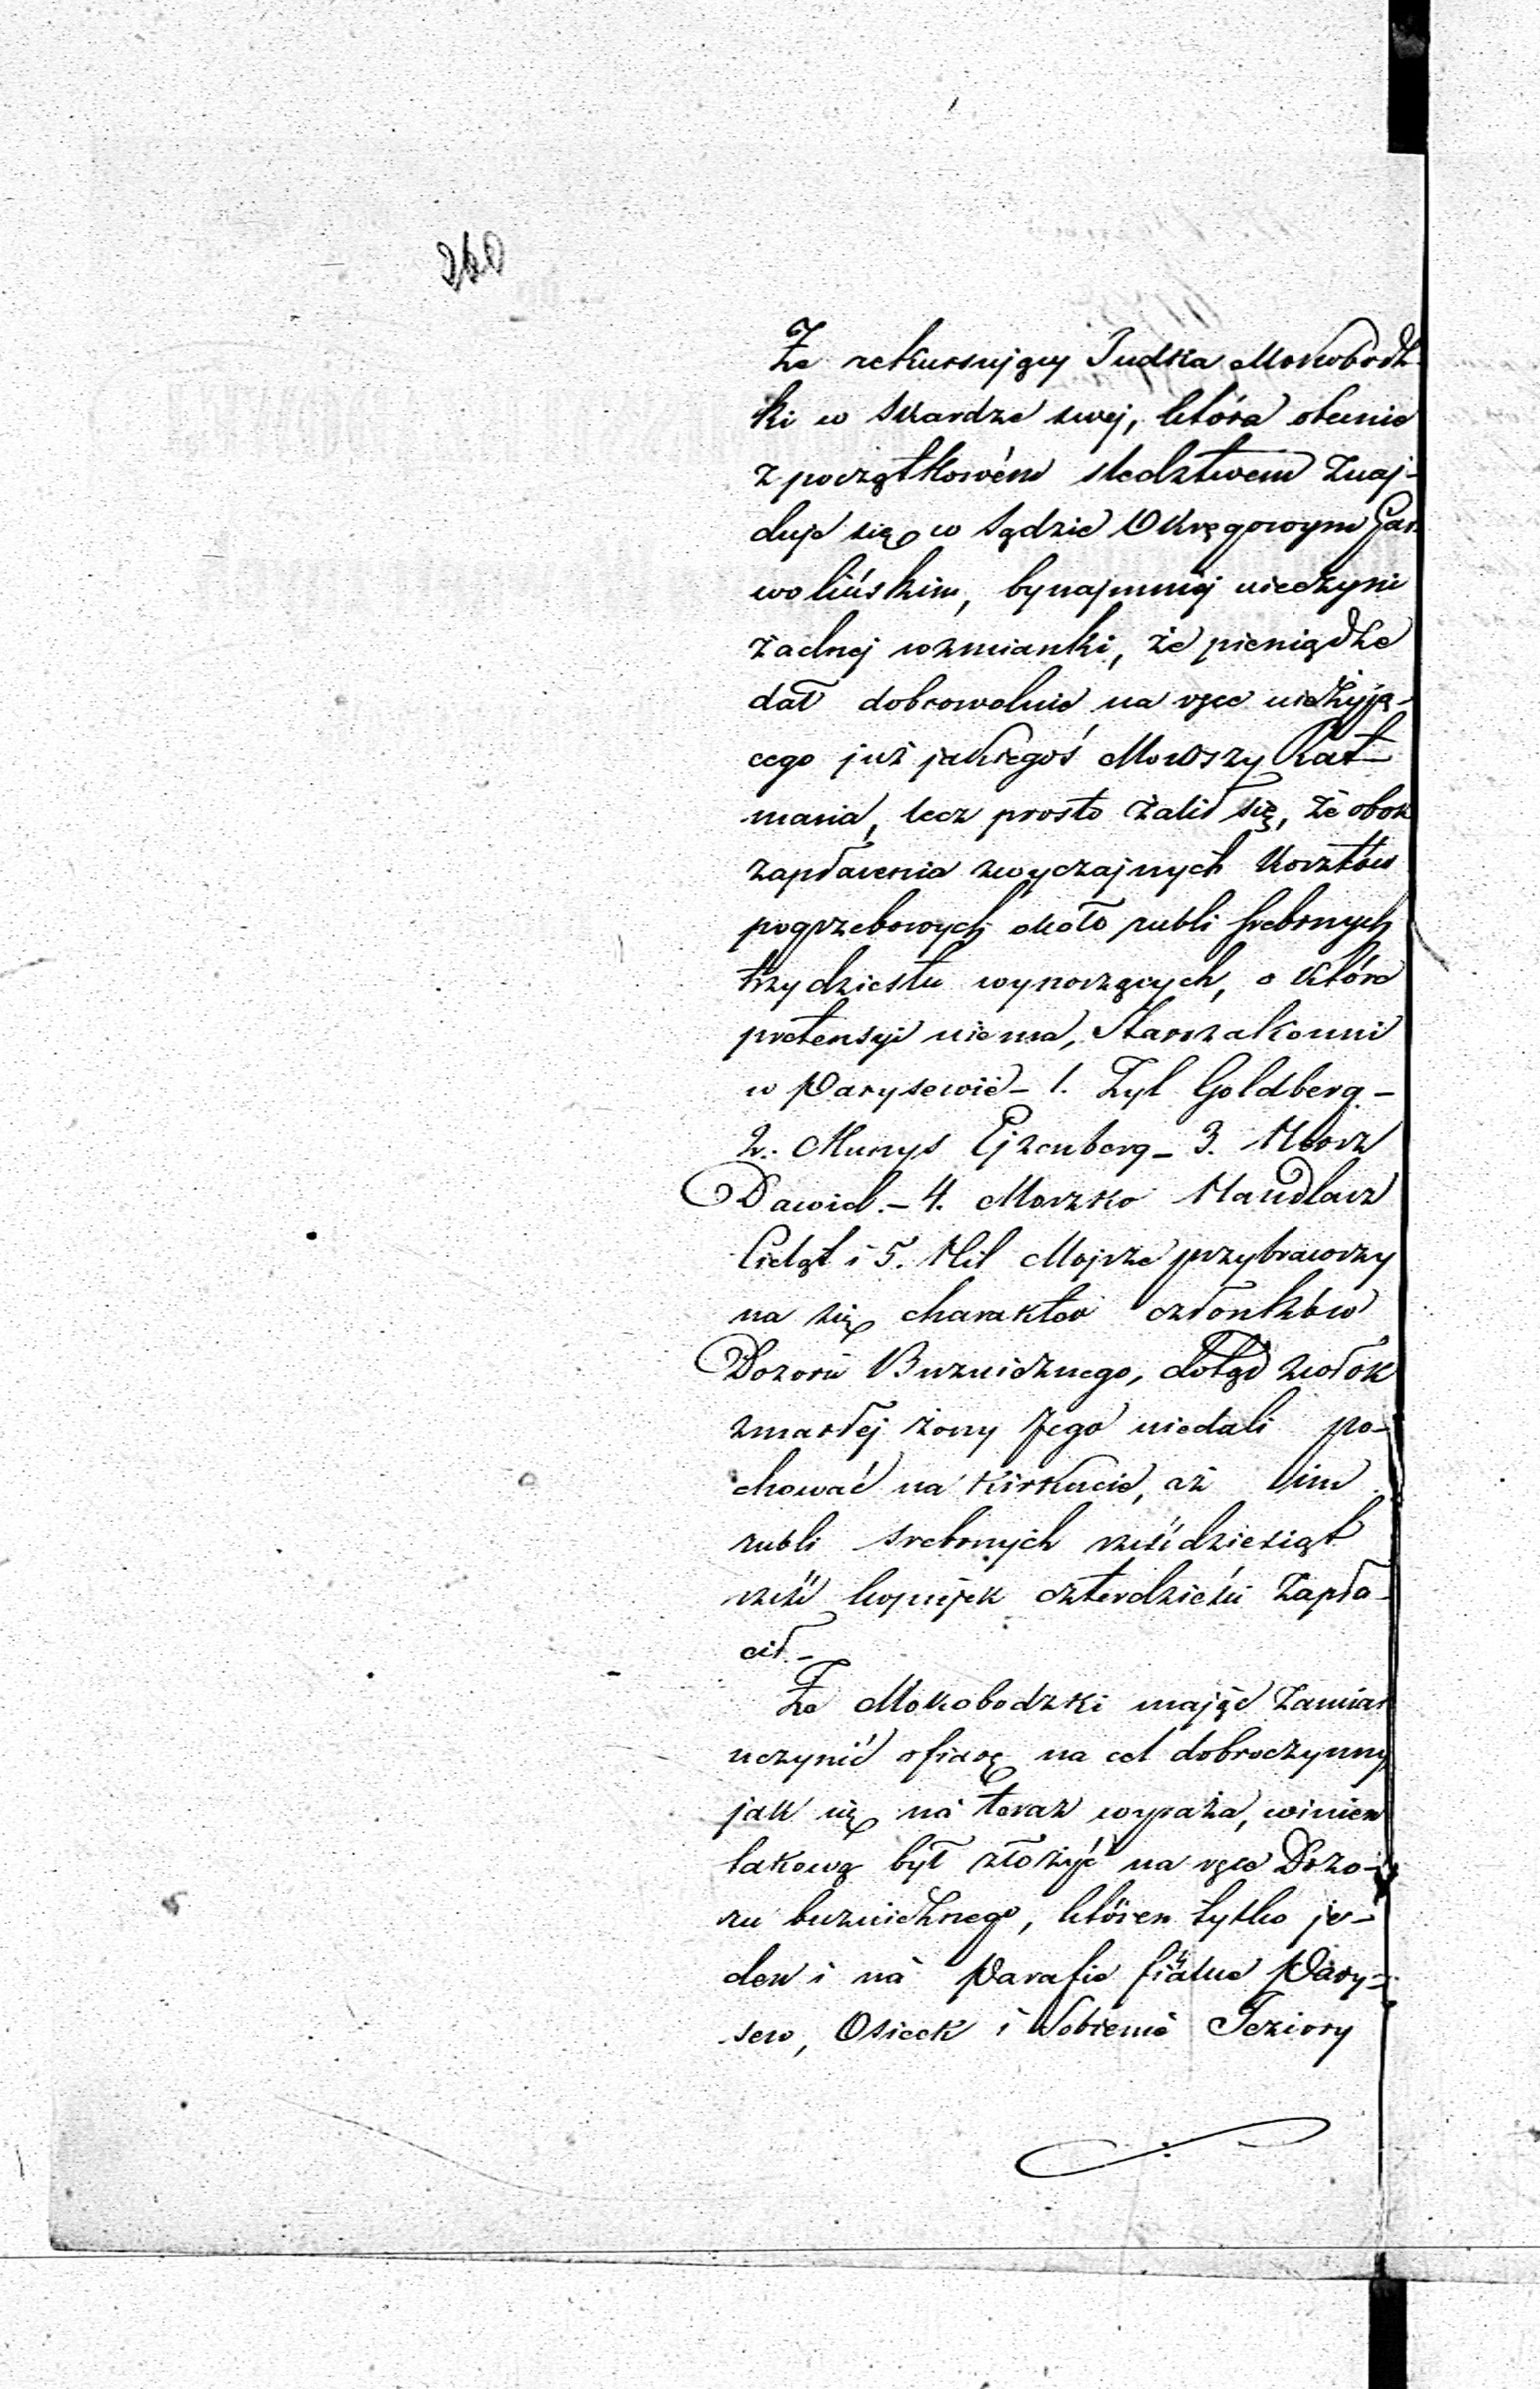 Że rekursujący Judka Mokobodz-
ki w skardze swej, która obecnie
z początkowém śledztwem znaj-
duje się w Sądzie Okręgowym Gar-
wolińskim, bynajmniej nieczyni
żadnej wzmianki, że pieniądze
dał dobrowolnie na ręce nieżyją-
cego już jakiegoś Moszy Rat
mana, lecz prosto żalił się, że obok
zapłacenia zwyczajnych kosztów
pogrzebowych około rubli srebrnych
trzydziestu wynoszących, o które
pretensyi niema, Starozakonni
w Parysewie – 1. Zyl Goldberg –
2. Munys Ejzenberg – 3. Herz
Dawid. – 4. Moszko Handlarz
Cieląt i 5. Hil Mojsze przybrawszy
na się charakter członków
Dozoru Buznicznego, dotąd zwłok
zmarłej żony Jego niedali po-
chować na Kirkucie, aż im
rubli srebrnych sześćdziesiąt
sześć kopiejek czterdzieści zapła-
cił. –
Że Mokobodzki mając zamiar
uczynić ofiarę na cel dobroczynny
jak się na teraz wyraża, winien
takową był złożyć na ręce Dozo-
ru buznicznego, któren tylko je-
den i na Parafie filialne Pary-
sew, Osieck i Sobienie Jeziory